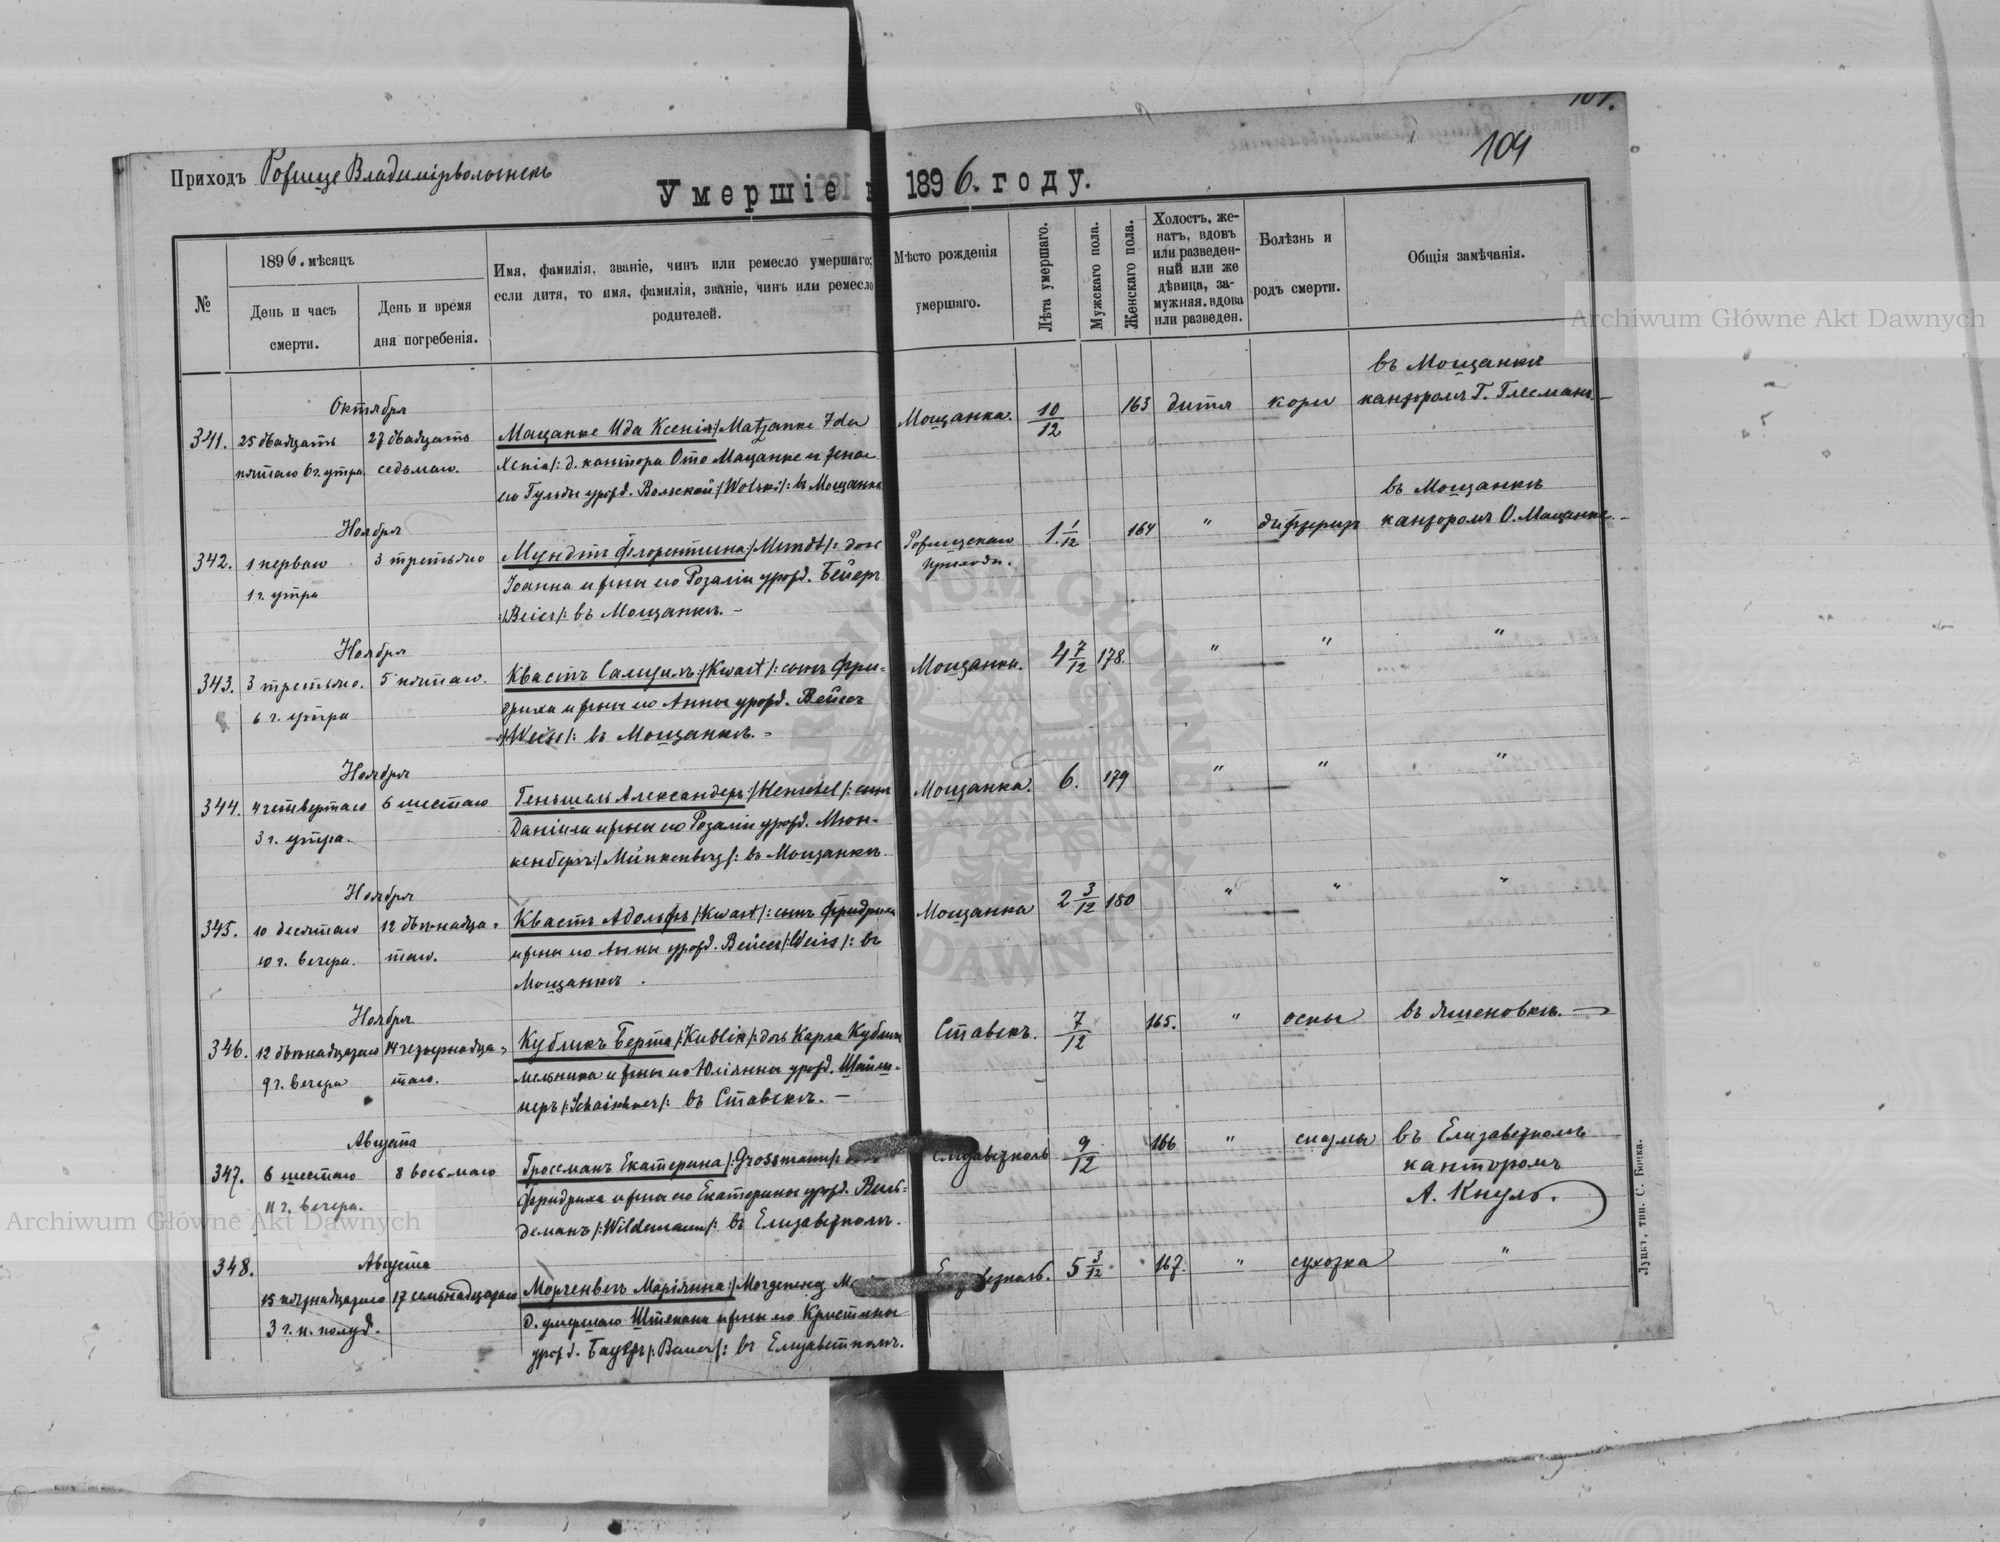 104
Приходъ Рожище Владимірволынскъ
Умершіе въ 1896. году.
№
1896. мѣсяцъ
День и часъ смерти.
День и время дня погребенія.
Имя, фамилія, званіе, чинъ или ремесло умершаго;
если дитя, то имя, фамилія, званіе, чинъ или ремесло
родителей.
Мѣсто рожденія
умершаго.
Лѣта умершаго.
Мужскаго пола.
Женскаго пола.
Холостъ, же-
натъ, вдовъ
или разведен-
ный или же
дѣвица, за-
мужняя, вдова
или разведен.
Болѣзнь и
родъ смерти.
Общія замѣчанія.
Октября
341. 25 двадцать 27 двадцать Мацанке Ида Ксенія /:Matzanke Ida Мощанка. 10/12 163 дитя кори въ Мощанкѣ
пятаго 6 г. утра седьмаго. Xenia/: д. кантора Ото Мацанке и жены канторомъ Г. Глесманъ
его Гульды урожд. Вольской /:Wolski/: въ Мощанкѣ
Ноября
342. 1 перваго 3 третьяго Мундтъ Флорентина /:Mundt/: дочь Рожищскаго 1 1/12 164 " дифтеритъ въ Мощанкѣ
1 г. утра Іоанна и жены его Розаліи урожд. Бейеръ прихода. канторомъ О. Мацанке
/:Beier/: въ Мощанкѣ. –
Ноября
343. 3 третьяго. 5 пятаго. Квастъ Самуилъ /:Kwast/: сынъ Фри- Мощанка. 4 7/12 178. " " "
6 г. утра дриха и жены его Анны урожд. Вейсъ
/:Weiss/: въ Мощанкѣ. –
Ноября
344. 4 четвертаго 6 шестаго Геншель Александеръ /:Henschel/: сынъ Мощанка. 6. 179 " " "
3 г. утра. Даніила и жены его Розаліи урожд. Мюн-
кенбергъ /:Münkenberg/: въ Мощанкѣ
Ноября
345. 10 десятаго 12 двѣнадца- Квастъ Адольфъ /:Kwast/: сынъ Фридриха Мощанка 2 3/12 180 " " "
10 г. вечера. таго. и жены его Анны урожд. Вейсъ /:Weiss/: въ
Мощанкѣ.
Ноября
346. 12 двѣнадцатаго 14 четырнадца- Кубликъ Берта /:Kublik/: дочь Карла Кублика Ставекъ. 7/12 165. " оспы въ Яшеновкѣ. –
9 г. вечера таго. мельника и жены его Юліянны урожд. Шайш-
неръ /:Schaischner/: въ Ставекѣ. –
Августа
347. 6 шестаго 8 восьмаго Гроссманъ Екатерина /:Grossmann/: Елизаветполь 9/12 166 " спазмы въ Елизаветполѣ
11 г. вечера. Фридриха и жены его Екатерины урожд. Виль- канторомъ
деманъ /:Wildemann/: въ Елизаветполѣ. А. Кнуль.
Августа
348. 15 пятнадцатаго 17 семьнадцатаго Моргенвегъ Маріянна 5 3/12 167. " сухотка "
3 г. п. полуд. д. умершаго Штефана и жены его Кристины
урожд. Бауеръ /:Bauer/: въ Елизаветполѣ.
Луцкъ, тип. С. Бонка.
Archiwum Główne Akt Dawnych
Archiwum Główne Akt Dawnych
ARCHIWUM GŁÓWNE AKT DAWNYCH